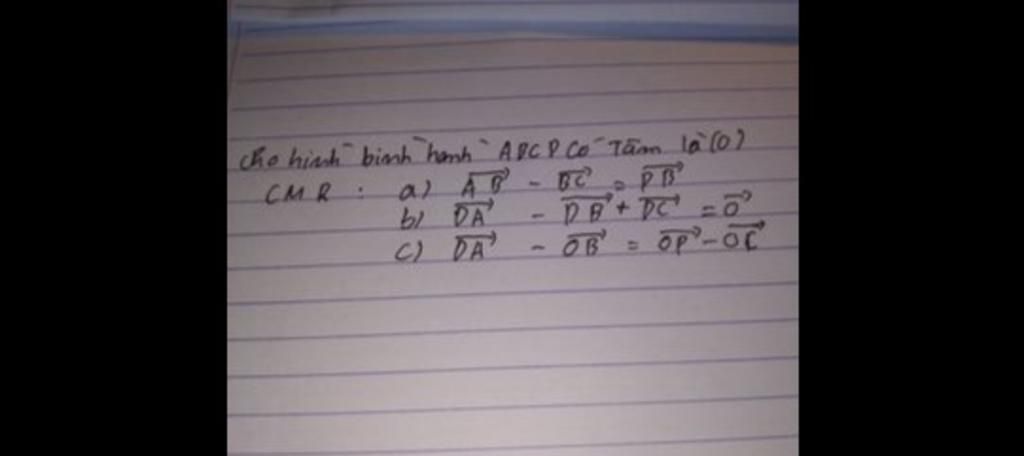 Cho hình bình hành ABCD Có Tâm là (O)
CMR : a) AB - BC = DB
b) DA - DB + DC = O
c) DA - OB = OD - OC